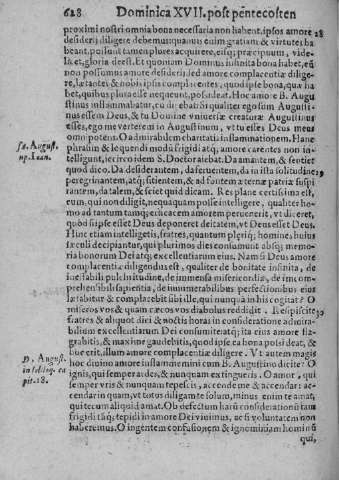 628 Dominica XVII. post pentecosten
proximi nostri omnia bona necessaria non habent, ipsos amore 28
desiderij diligere debemus quamuis enim gratiam & virtutes ha
beant, possunt tamen plures acquirere, eisq; præcipuum, vide-
la et, gloria deest. Et quoniam Dominus infinita bona habet, eū
non possumus amore desiderij, sed amore complacentiæ dilige-
re, lætantes & nobis ipsis complicentes, quod ipse bona, quæ ha
bet, quibus plura esse nequeunt, possideat. Hoc amore B. Augu
stinus inflammabatur, cū diebat: Si qualitet ego sum Augusti-
nus essem Deus, & tu Domine vniuersæ creaturæ Augustinus
esses, ego me verterem in Augustinum, vt tu esses Deus meus
omnipotens. O admirabilem charitatis inflammationem. Hanc
phrasim & loquendi modū frigidi atq; amore carentes non in-
Sæ. August. telligunt, iccirco idem S. Doctor aiebat. Da amantem, & sentiet
sup. Ioan. quod dico. Da desiderantem, da feruentem, da in ista solitudine
peregrinantem, atq; sitientem, & ad fontem æternæ patriæ suspi
rantem, da talem, & sciet quid dicam. Res plane certissima est,
eum, qui non diligit, nequaquam posse intelligere, qualiter ho-
mo ad tantum tamq; efficacem amorem peruenerit, vt diceret,
quòd si ipse esset Deus deponeret deitatem, vt Deus esset Deus.
Hinc etiam intelligetis, fratres, quantum plerīq; homine, huius
sæculi decipiantur, qui plurimos dies consumunt absq; memo-
ria bonorum Dei atq; excellentiarum eius. Nam si Deus amore
complacentiæ diligendus est, qualiter de bonitate infinita, de
ineffabili pulchritudine, de immensa misericordia, de incom-
prehensibili sapientia, de innumerabilibus perfectionibus eius
lætabitur & complacebit sibi ille, qui nunquā in his cogitat? O
miseros vos & quam cæcos vos diabolus reddidit. Resipiscite 30
fratres & aliquot diei & noctis horas in consideratione admira-
bilium excellentiarum Dei consumite atq; ita eius amore fla-
grabitis, & maxime gaudebitis, quod ipse ea bona posideat, &
D. August. hoc erit, illum amore complacentiæ diligere. Vt autem magis
in soliloq. ca hoc diuino amore inflammemini cum B. Augustino dicite? O
pit. 18. ignis, qui semper ardes, & nunquam extingueris. O amor, qui
semper vris & nunquam tepescis, accende me & accendar: ac-
cendar in quam, vt totus diligam te solum, minus enim te amat,
qui tecum aliquid amat. Ob defectum harū considerationū tam
frigidi tāq; tepidi in amore Dei viuimus, ac si voluntatem non
haberemus. O ingentem confusionem & ignominiam hominū
qui,